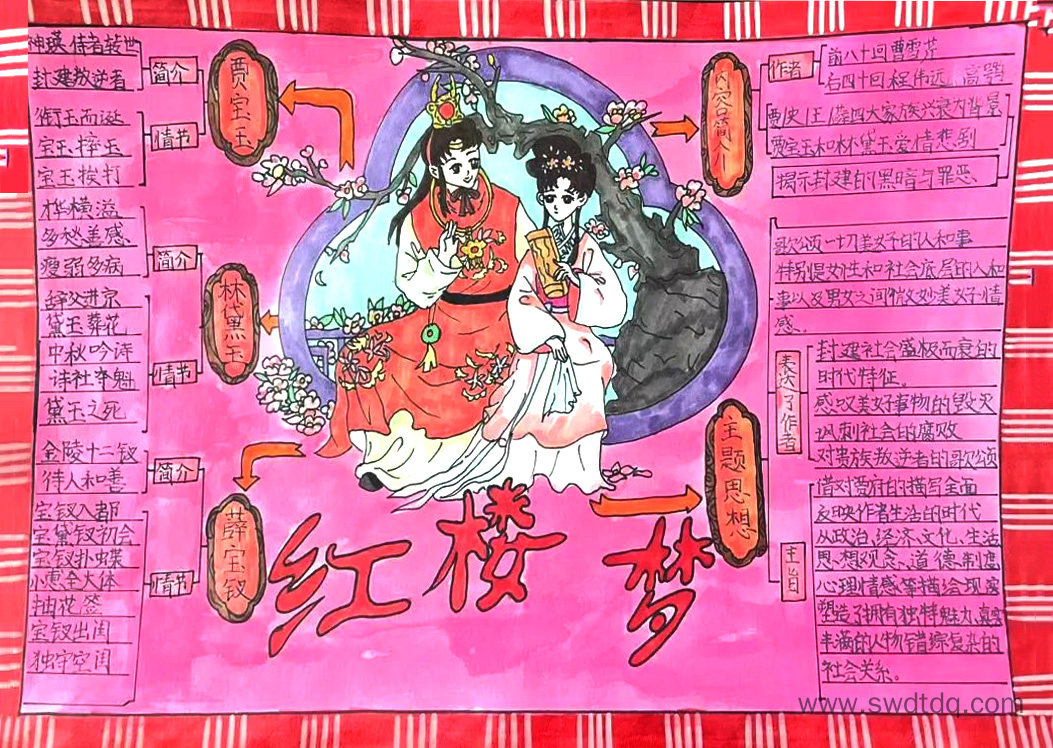 神瑛侍者转世
封建叛逆者
简介
贾宝玉
衔玉而诞
宝玉摔玉
宝玉挨打
情节
横溢
多愁善感
瘦弱多病
简介
林黛玉
辞父进京
黛玉葬花
中秋吟诗
诗社夺魁
黛玉之死
情节
金陵十二钗
待人和善
简介
薛宝钗
宝钗入都
宝黛钗初会
宝钗扑虫蝶
小惠全大体
抽花签
宝钗出闺
独守空闺
情节
红楼梦
内容简介
作者
前八十回曹雪芹
后四十回程伟远、高鹗
贾史王薛四大家族兴衰为背景
贾宝玉和林黛玉爱情悲剧
揭示封建的黑暗与罪恶
主题思想
表达了作者
歌颂一切美好的人和事
特别是女性和社会底层的人和
事以及男女之间微妙美好情
感。
封建社会盛极而衰的
时代特征。
感叹美好事物的毁灭
讽刺社会的腐败
对贵族叛逆者的歌颂
主旨
借对贾府的描写全面
反映作者生活的时代
从政治、经济、文化、生活
思想观念、道德、制度
心理情感等描绘现实
塑造了拥有独特魅力、真实
丰满的人物错综复杂的
社会关系。
www.swdtdq.com